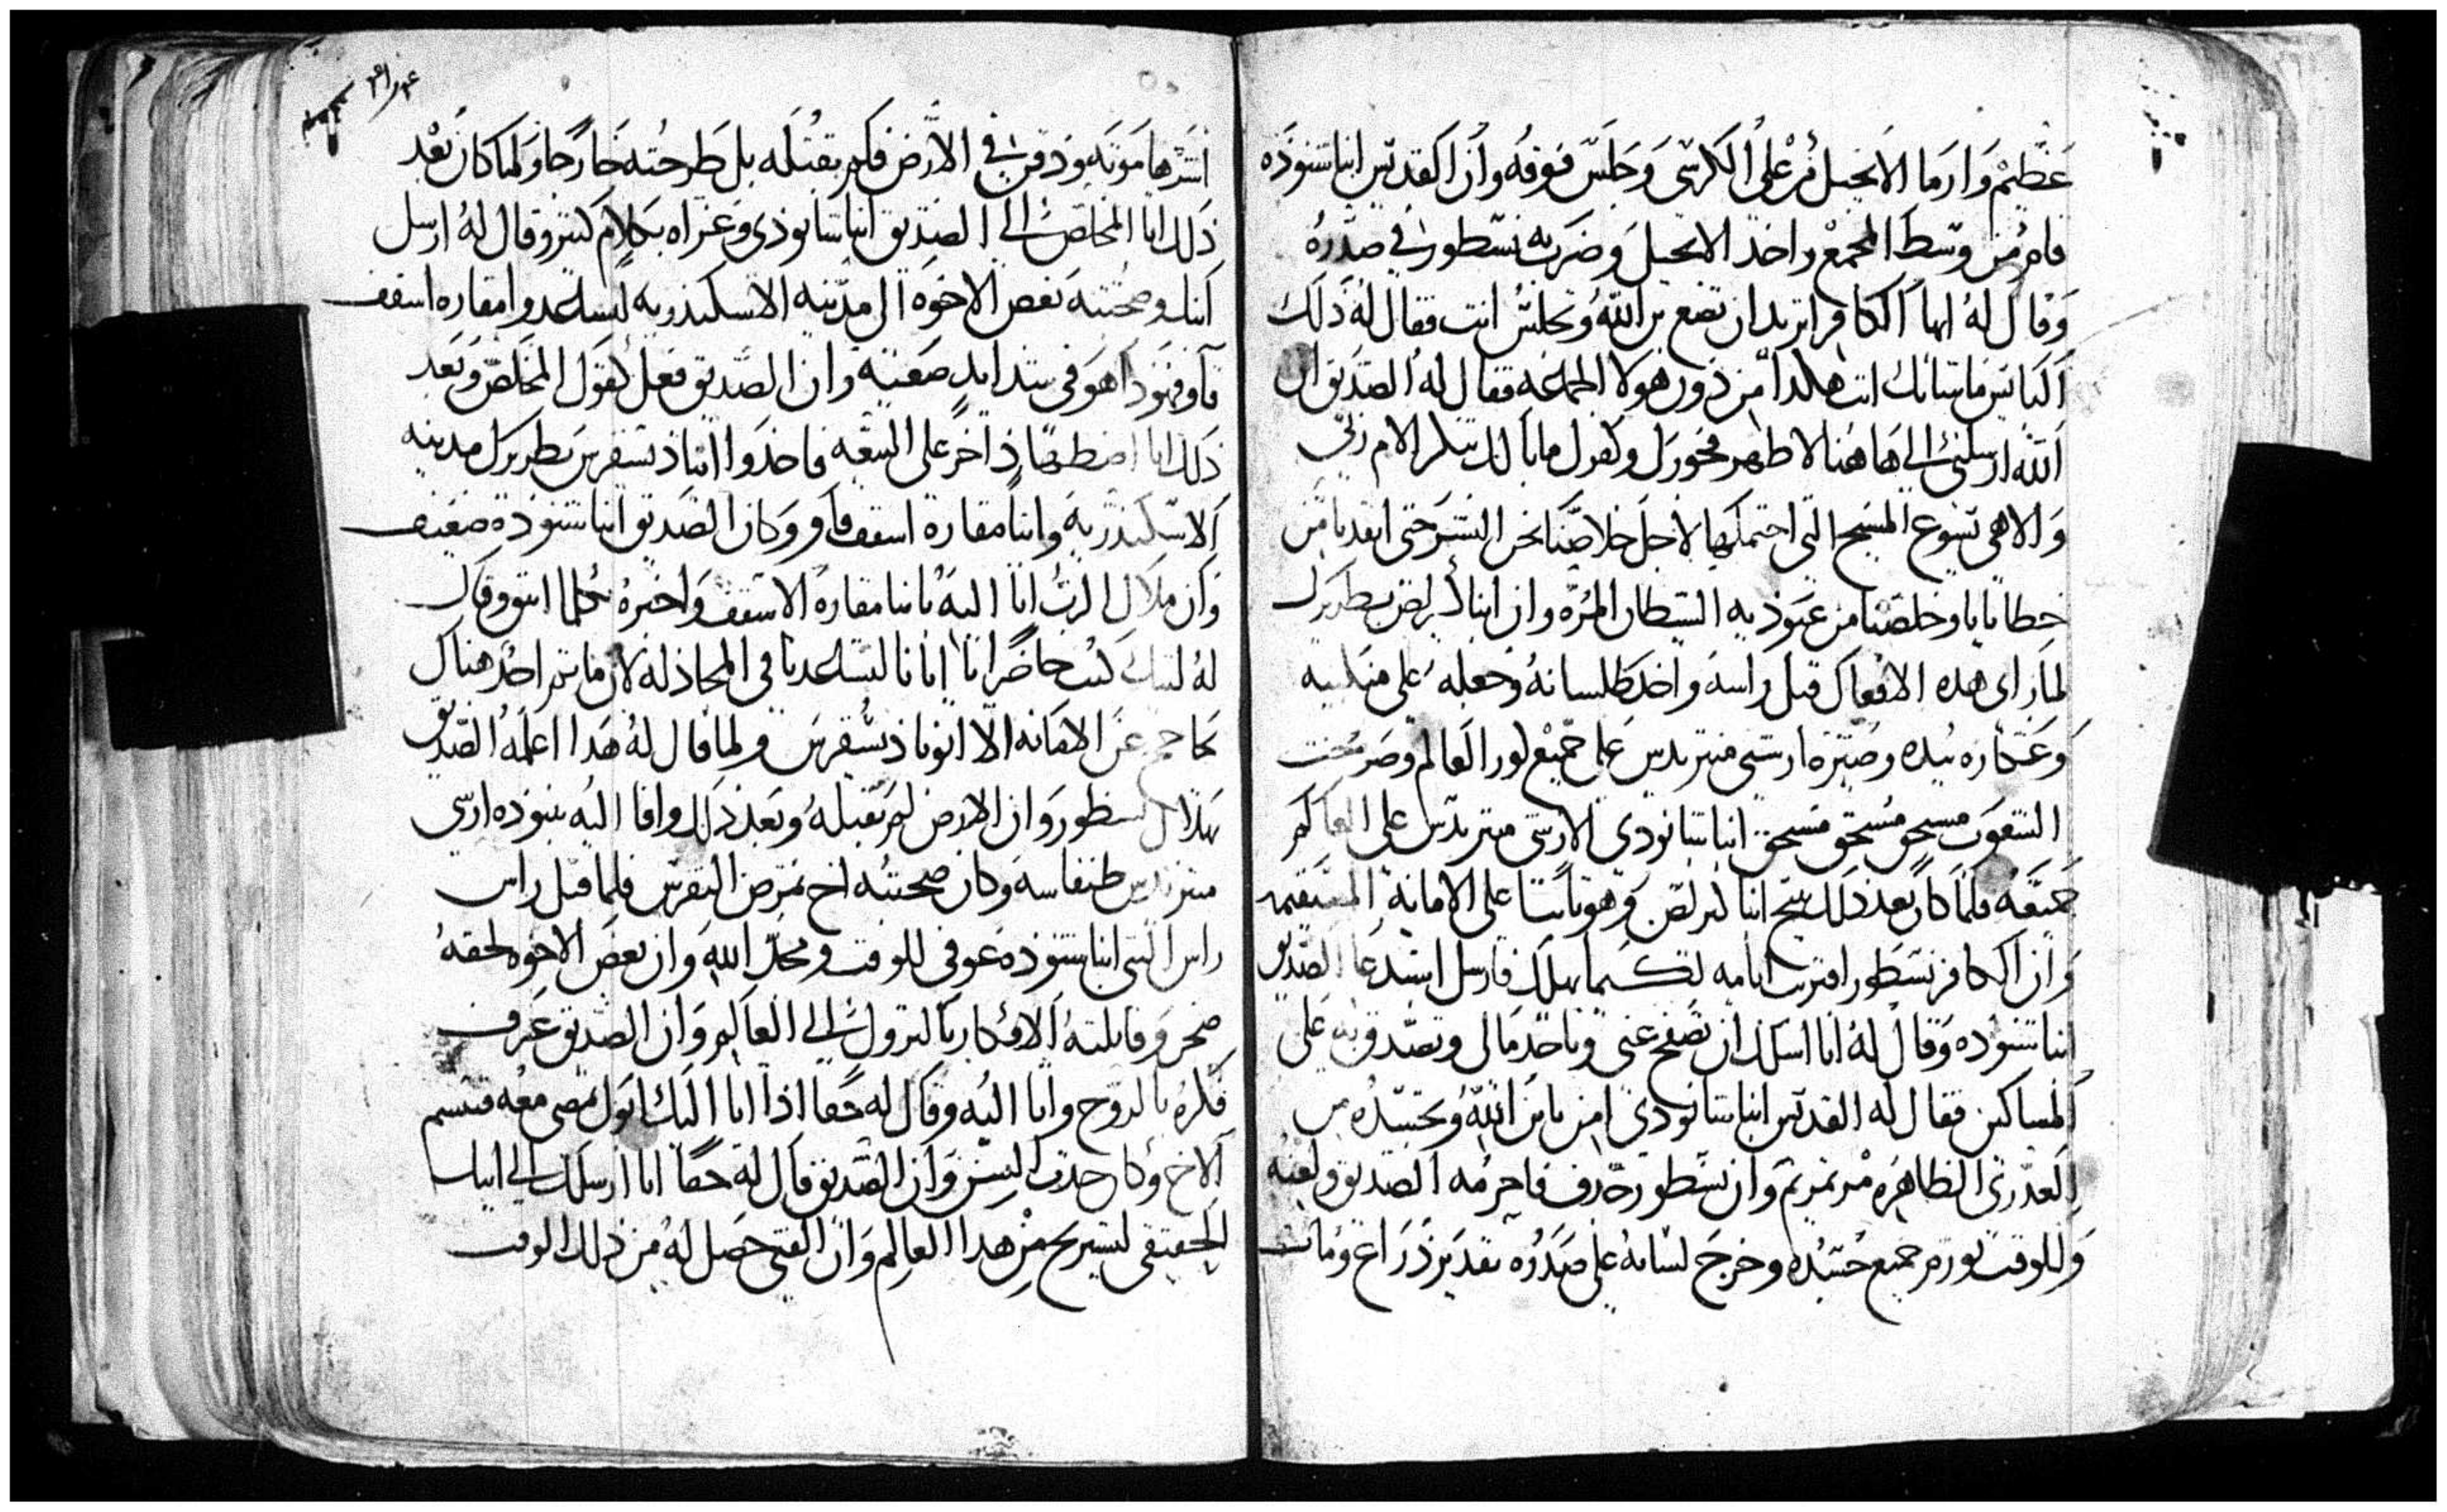 عظيم وارما الانجيل من على الكرسي وجلس فوقه وان القديس انبا شنوده
قام من وسط المجمع واخد الانجيل وضربه نسطور في صدره
وقال له ايها الكافر اتريد ان تضع بن الله وتجلس انت فقال له ذلك
الكايس ما شانك انت هكدا من دون هولا الجماعه فقال له الصديق ان
الله ارسلني الى هاهنا لاظهر فجورك وكفرك مابالك تنكر الام ربي
والاهي يسوع المسيح التي احتملها لاجل خلاصنا نحن البشر حتى انقدنا من
خطايانا وخلصنا من عبوديه الشيطان المره وان انبا كيرلص بطريرك
لما راى هده الافعال قبل راسه واخد طلسانه وجعله على منكبيه
وعكازه بيده وصيره ارشي منتريدس على جميع كور العالم وصرخت
الشعوب مسحق مسحق مسحق انبا شانودي الارشي منتريدس على العالم
جميعه فلما كان بعد ذلك تنيح انبا كيرلص وهو ثابتا على الامانه المستقيمه
وان الكافر نسطور اقتربت ايامه لكيما يهلك فارسل استدعا الصديق
انبا شنوده وقال له انا اسلك ان تصفح عني وتاخد مالي وتصدق به على
المساكين فقال له القديس انبا شانودي امن بابن الله وتجسده من
العدرى الطاهره مرتمريم وان نسطور جدف فاحرمه الصديق ولعنه
وللوقت تورم جميع جسده وخرج لسانه على صدره بقدر ذراع ومات
اشرها موته ودفن في الارض فلم تقبله بل طرحته خارجا ولما كان بعد
ذلك اتا المخلص الى الصديق انبا شانودي وعزاه بكلام كثير وقال له ارسل
انبا وصحبته بعض الاخوه الى مدينه الاسكندريه ليساعدوا مقاره اسقف
قاو فهودا هو في شدايد صعبه وان الصديق فعل كقول المخلص وبعد
ذلك اتا اضطهاد اخر على البيعه فاخدوا انبا دسقرس بطريرك مدينه
الاسكندريه وانبا مقاره اسقف قاو وكان الصديق انبا شنوده ضعيف
وان ملاك الرب اتا اليه بانبا مقاره الاسقف واخبره بكلما اتفق وقال
له ليتك كنت حاضرا يا ابانا لتساعدنا في المجادله لان ما ثم احد هناك
يحاجج عن الامانه الا ابونا دسقرس ولما قال له هدا اعلمه الصديق
بهلاك نسطور وان الارض لم تقبله وبعد ذلك وافا اليه بنوده ارشي
منتريدس طنفاسه وكان صحبته اخ بمرض النقرس فلما قبل راس
راس النبي انبا شنوده عوفي للوقت ومجد الله وان بعض الاخوه لحقه
ضجر وقاتلته الافكار بالنزول الى العالم وان الصديق عرف
فكره بالروح واتا اليه وقال له حقا اذا اتا اليك ابوك تمضي معه فتبسم
الاخ وكان حدث السن وان الصديق قال له حقا انا ارسلك الى ابيك
الحقيقي لتستريح من هدا العالم وان الفتى حصل له من ذلك الوقت